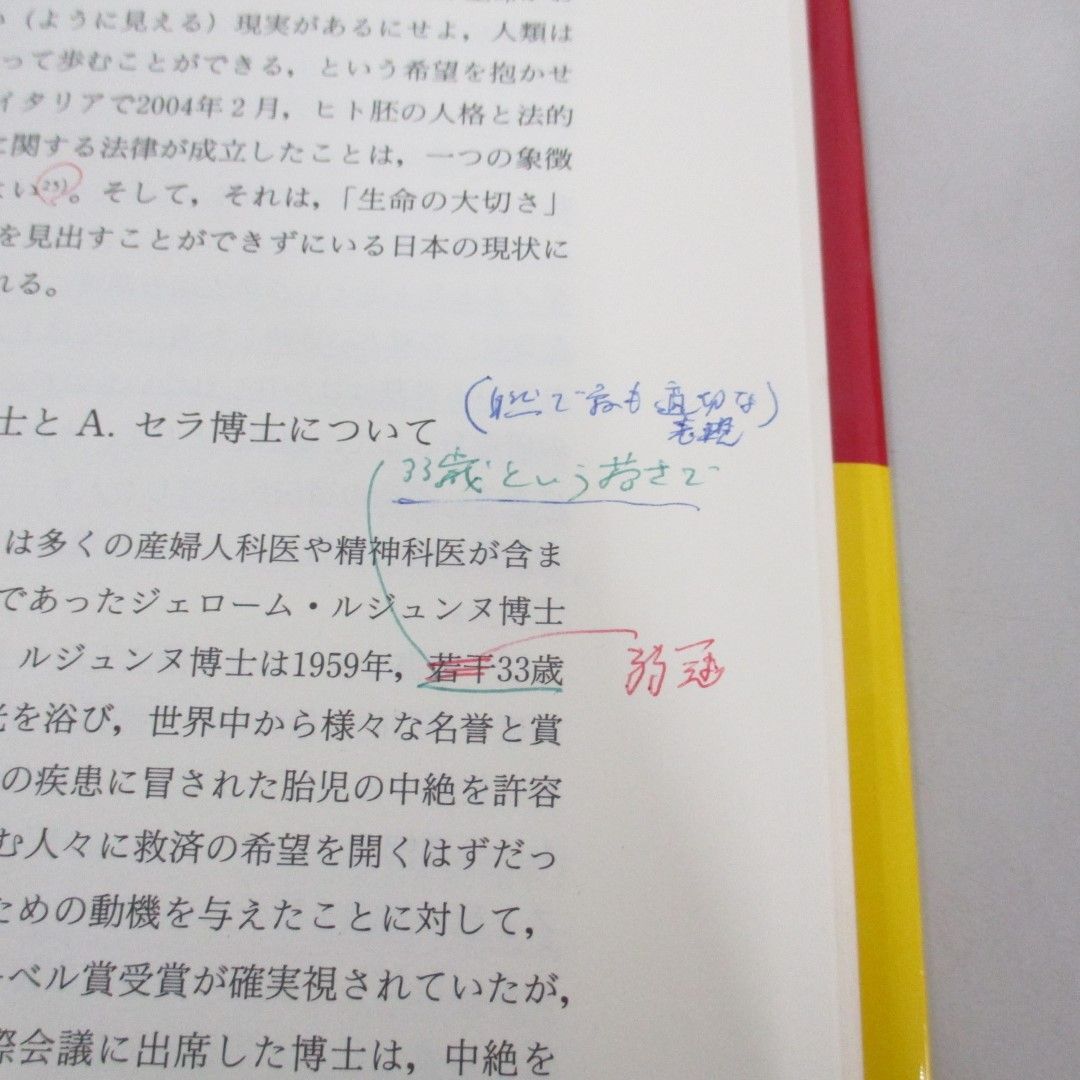 い（ように見える）現実があるにせよ，人類は
って歩むことができる，という希望を抱かせ
イタリアで2004年２月，ヒト胚の人格と法的
に関する法律が成立したことは，一つの象徴
よい²³⁾。そして，それは，「生命の大切さ」
を見出すことができずにいる日本の現状に
れる。
士と A. セラ博士について
(自然で最も適切な
表現)
33歳という若さで
は多くの産婦人科医や精神科医が含ま
であったジェローム・ルジュンヌ博士
ルジュンヌ博士は1959年，若干33歳
弱冠
光を浴び，世界中から様々な名誉と賞
の疾患に冒された胎児の中絶を許容
む人々に救済の希望を開くはずだっ
ための動機を与えたことに対して，
ーベル賞受賞が確実視されていたが，
際会議に出席した博士は，中絶を